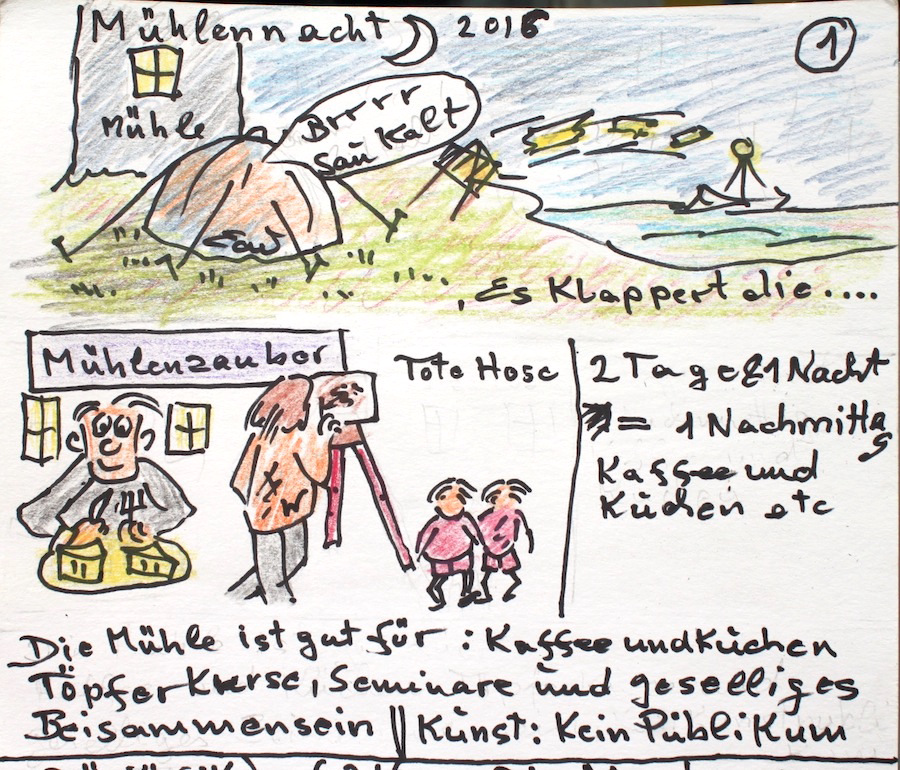 Mühlennacht 2016
1
Mühle
Brrrr
Saukalt
Es klappert die....
Mühlenzauber
Tote Hose
2 Tage & 1 Nacht
= 1 Nachmittag
Kaffee und
Kuchen etc
Die Mühle ist gut für: Kaffee und Kuchen
Töpferkurse, Seminare und geselliges
Beisammensein || Kunst: Kein Publikum